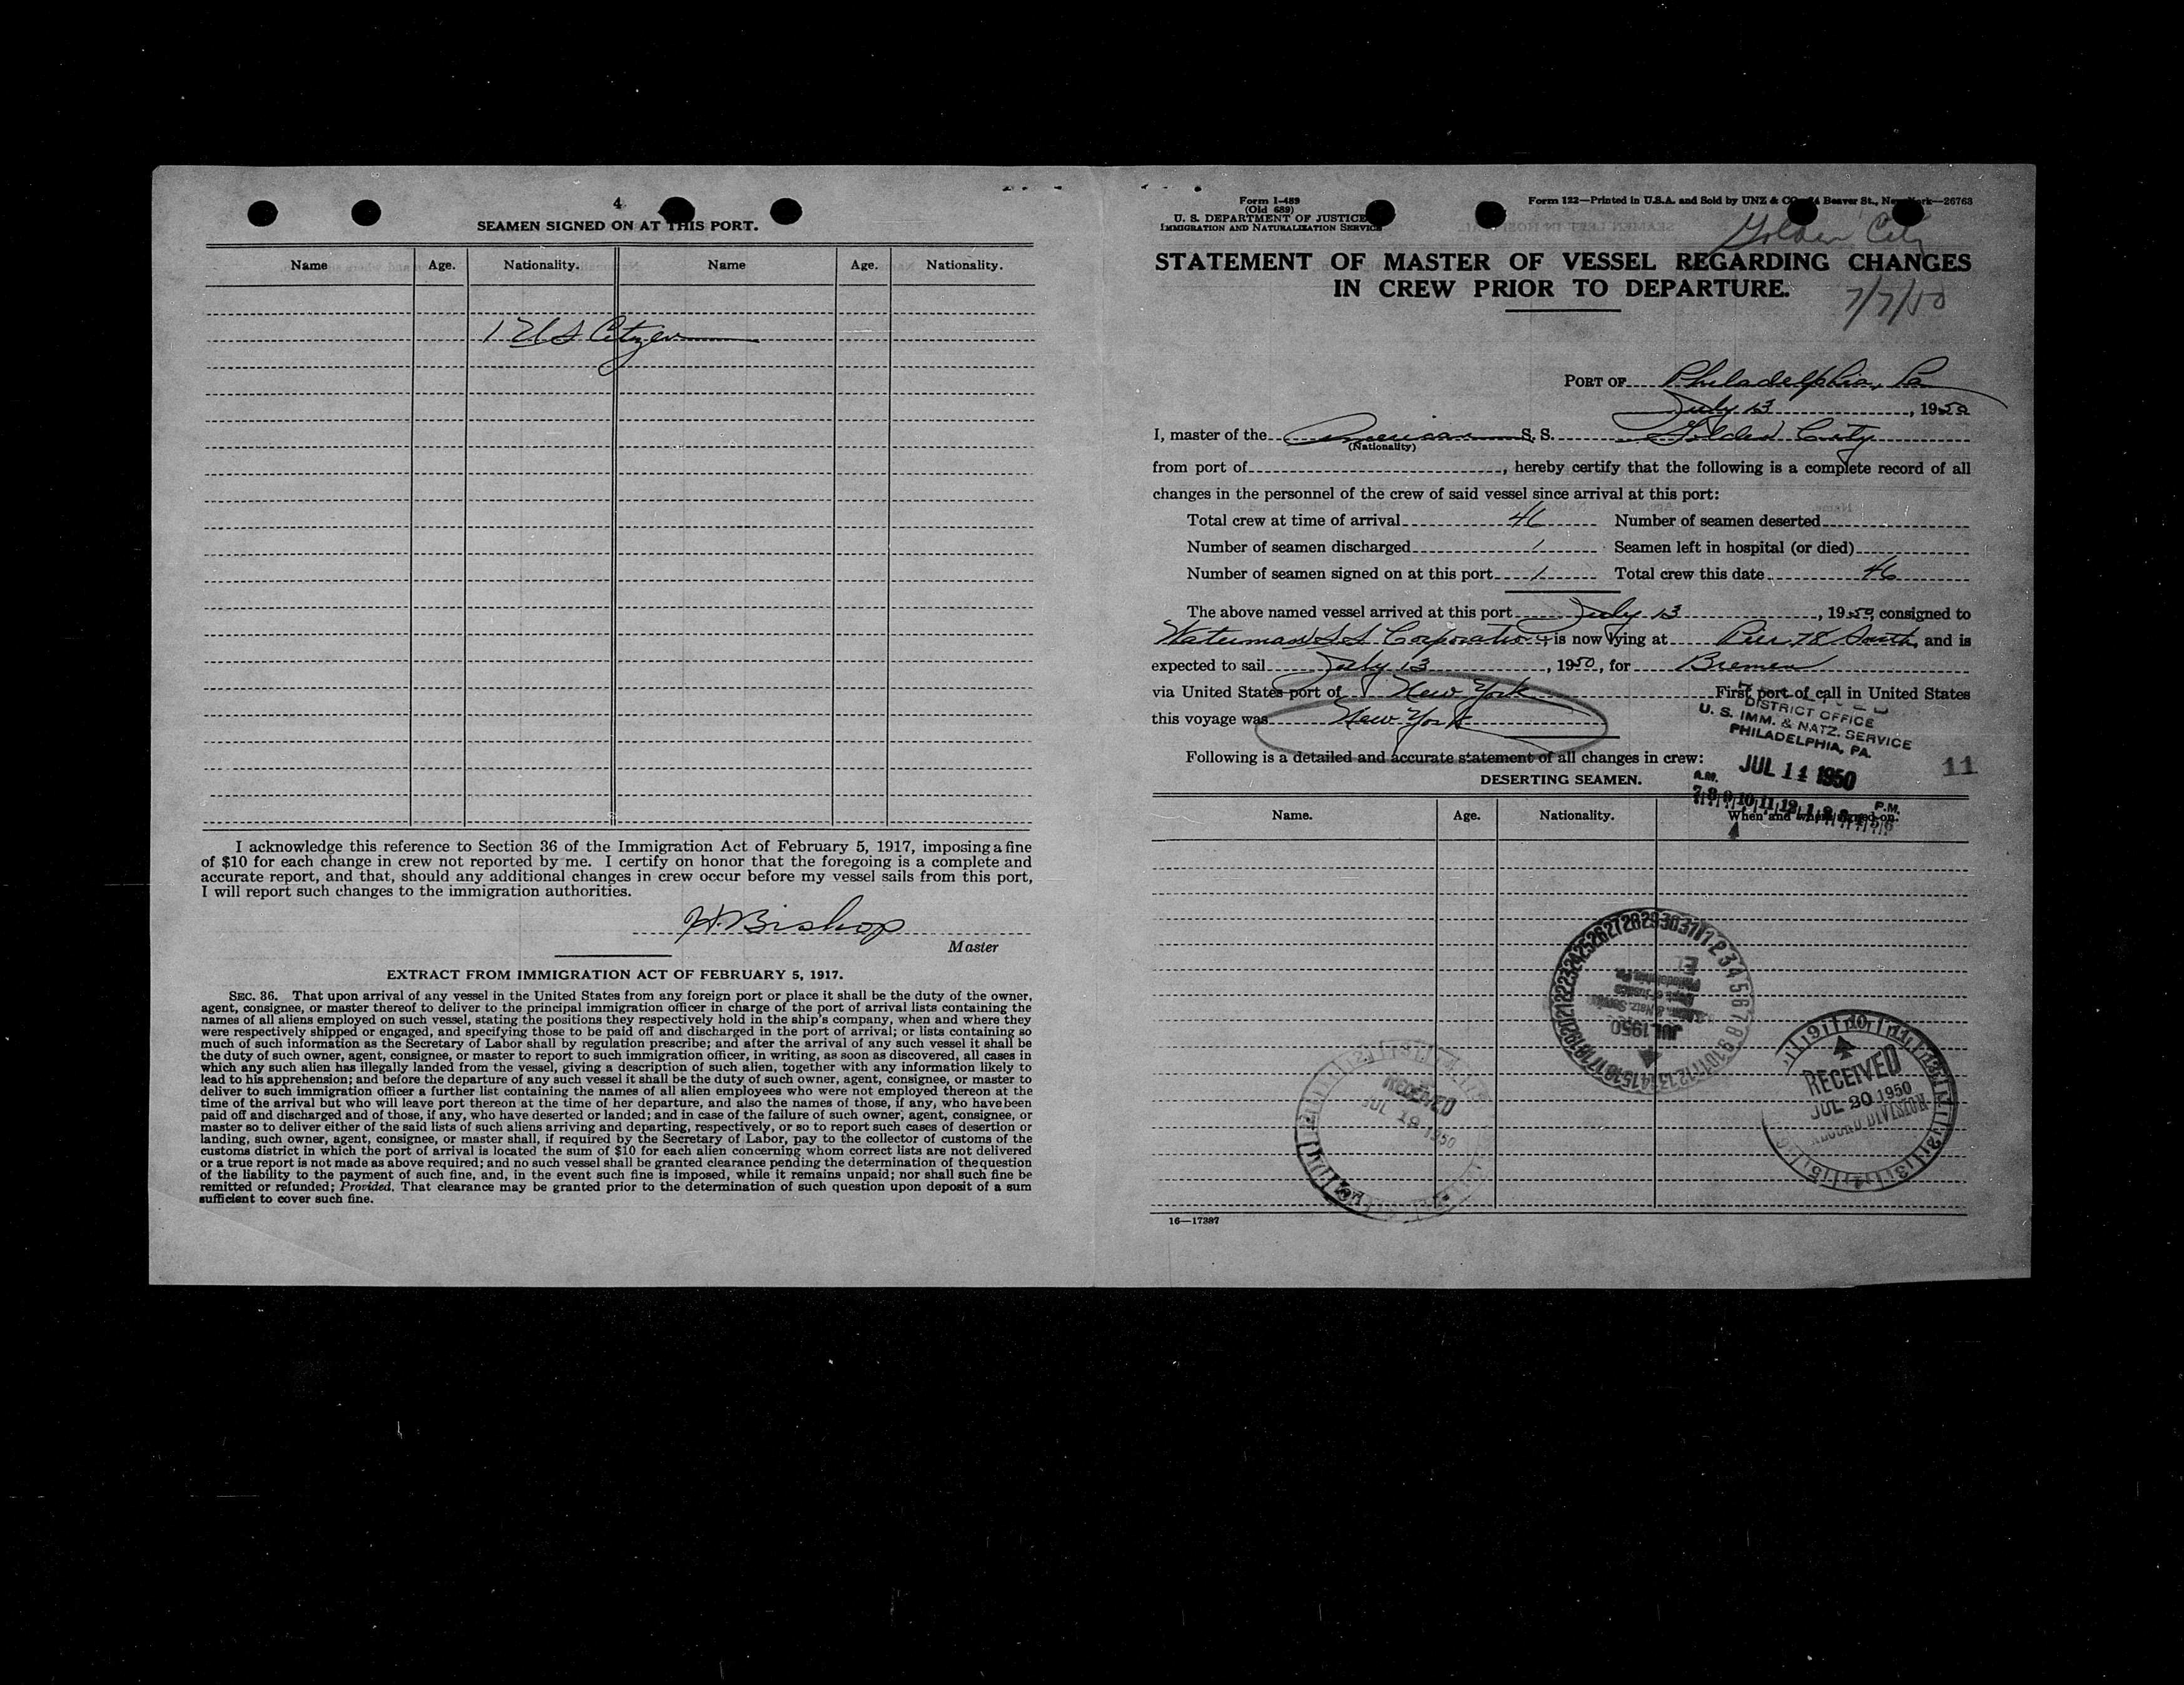 4
SEAMEN SIGNED ON AT THIS PORT.
Name Age. Nationality. Name Age. Nationality.
1 US Citizen
I acknowledge this reference to Section 36 of the Immigration Act of February 5, 1917, imposing a fine
of $10 for each change in crew not reported by me. I certify on honor that the foregoing is a complete and
accurate report, and that, should any additional changes in crew occur before my vessel sails from this port,
I will report such changes to the immigration authorities.
H. Bishop
Master
EXTRACT FROM IMMIGRATION ACT OF FEBRUARY 5, 1917.
SEC. 36. That upon arrival of any vessel in the United States from any foreign port or place it shall be the duty of the owner,
agent, consignee, or master thereof to deliver to the principal immigration officer in charge of the port of arrival lists containing the
names of all aliens employed on such vessel, stating the positions they respectively hold in the ship's company, when and where they
were respectively shipped or engaged, and specifying those to be paid off and discharged in the port of arrival; or lists containing so
much of such information as the Secretary of Labor shall by regulation prescribe; and after the arrival of any such vessel it shall be
the duty of such owner, agent, consignee, or master to report to such immigration officer, in writing, as soon as discovered, all cases in
which any such alien has illegally landed from the vessel, giving a description of such alien, together with any information likely to
lead to his apprehension; and before the departure of any such vessel it shall be the duty of such owner, agent, consignee, or master to
deliver to such immigration officer a further list containing the names of all alien employees who were not employed thereon at the
time of the arrival but who will leave port thereon at the time of her departure, and also the names of those, if any, who have been
paid off and discharged and of those, if any, who have deserted or landed; and in case of the failure of such owner, agent, consignee, or
master so to deliver either of the said lists of such aliens arriving and departing, respectively, or so to report such cases of desertion or
landing, such owner, agent, consignee, or master shall, if required by the Secretary of Labor, pay to the collector of customs of the
customs district in which the port of arrival is located the sum of $10 for each alien concerning whom correct lists are not delivered
or a true report is not made as above required; and no such vessel shall be granted clearance pending the determination of the question
of the liability to the payment of such fine, and, in the event such fine is imposed, while it remains unpaid; nor shall such fine be
remitted or refunded; Provided, That clearance may be granted prior to the determination of such question upon deposit of a sum
sufficient to cover such fine.
Form I-489
(Old 689)
U. S. DEPARTMENT OF JUSTICE
IMMIGRATION AND NATURALIZATION SERVICE
Form 122—Printed in U.S.A. and Sold by UNZ & CO. Beaver St., New York—26763
Golden City
STATEMENT OF MASTER OF VESSEL REGARDING CHANGES
IN CREW PRIOR TO DEPARTURE.
7/7/50
PORT OF Philadelphia, Pa
July 13, 1950
I, master of the American S. S. Golden City
(Nationality)
from port of , hereby certify that the following is a complete record of all
changes in the personnel of the crew of said vessel since arrival at this port:
Total crew at time of arrival 46 Number of seamen deserted
Number of seamen discharged 1 Seamen left in hospital (or died)
Number of seamen signed on at this port 1 Total crew this date 46
The above named vessel arrived at this port July 13, 1950, consigned to
Waterman SS Corporation, is now lying at Pier 78 South, and is
expected to sail July 13, 1950, for Bremen
via United States port of New York First port of call in United States
this voyage was New York
DISTRICT OFFICE
U. S. IMM. & NATZ. SERVICE
PHILADELPHIA, PA.
Following is a detailed and accurate statement of all changes in crew:
JUL 14 1950
11
DESERTING SEAMEN.
A.M. 7 8 9 10 11 12 1 2 3 4 5 6 P.M.
Name. Age. Nationality. When and where signed on.
JUL 1950
RECEIVED
JUL 19 1950
RECEIVED
JUL 20 1950
RECORD DIVISION
16—17387